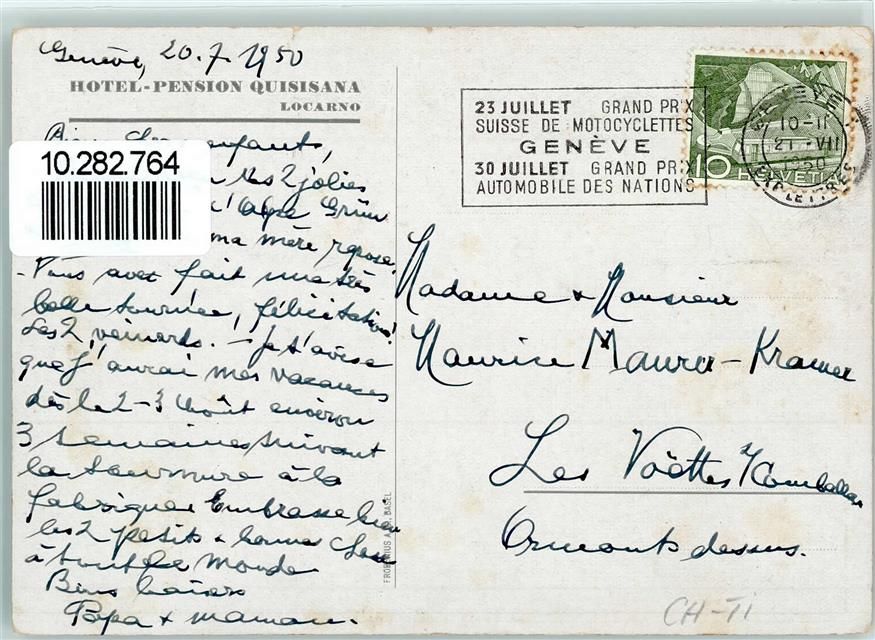 Genève, 20.7.1950
HOTEL-PENSION QUISISANA
LOCARNO
Bien chers enfants,
10.282.764
les 2 jolies
l'alpe Grüm
ma mère repose.
- Vous avez fait une très
belle tournée, félicitations!
Les 2 veinards. - Je t'avise
que j'aurai mes vacances
dès le 2-3 Août environ
3 semaines suivant
la tournure à la
fabrique. Embrasse bien
les 2 petits &
à tout le monde
Bons baisers
Papa & maman.
FROBENIUS A.G. BASEL
23 JUILLET GRAND PRIX
SUISSE DE MOTOCYCLETTES
GENÈVE
30 JUILLET GRAND PRIX
AUTOMOBILE DES NATIONS
GENÈVE 1
10-11
21.-VII
1950
EXP. LETTRES
10 HELVETIA
Madame & Monsieur
Maurice Maurer-Kramer
Les Voëttes s/Comballaz
Ormonts dessus.
CH-TI